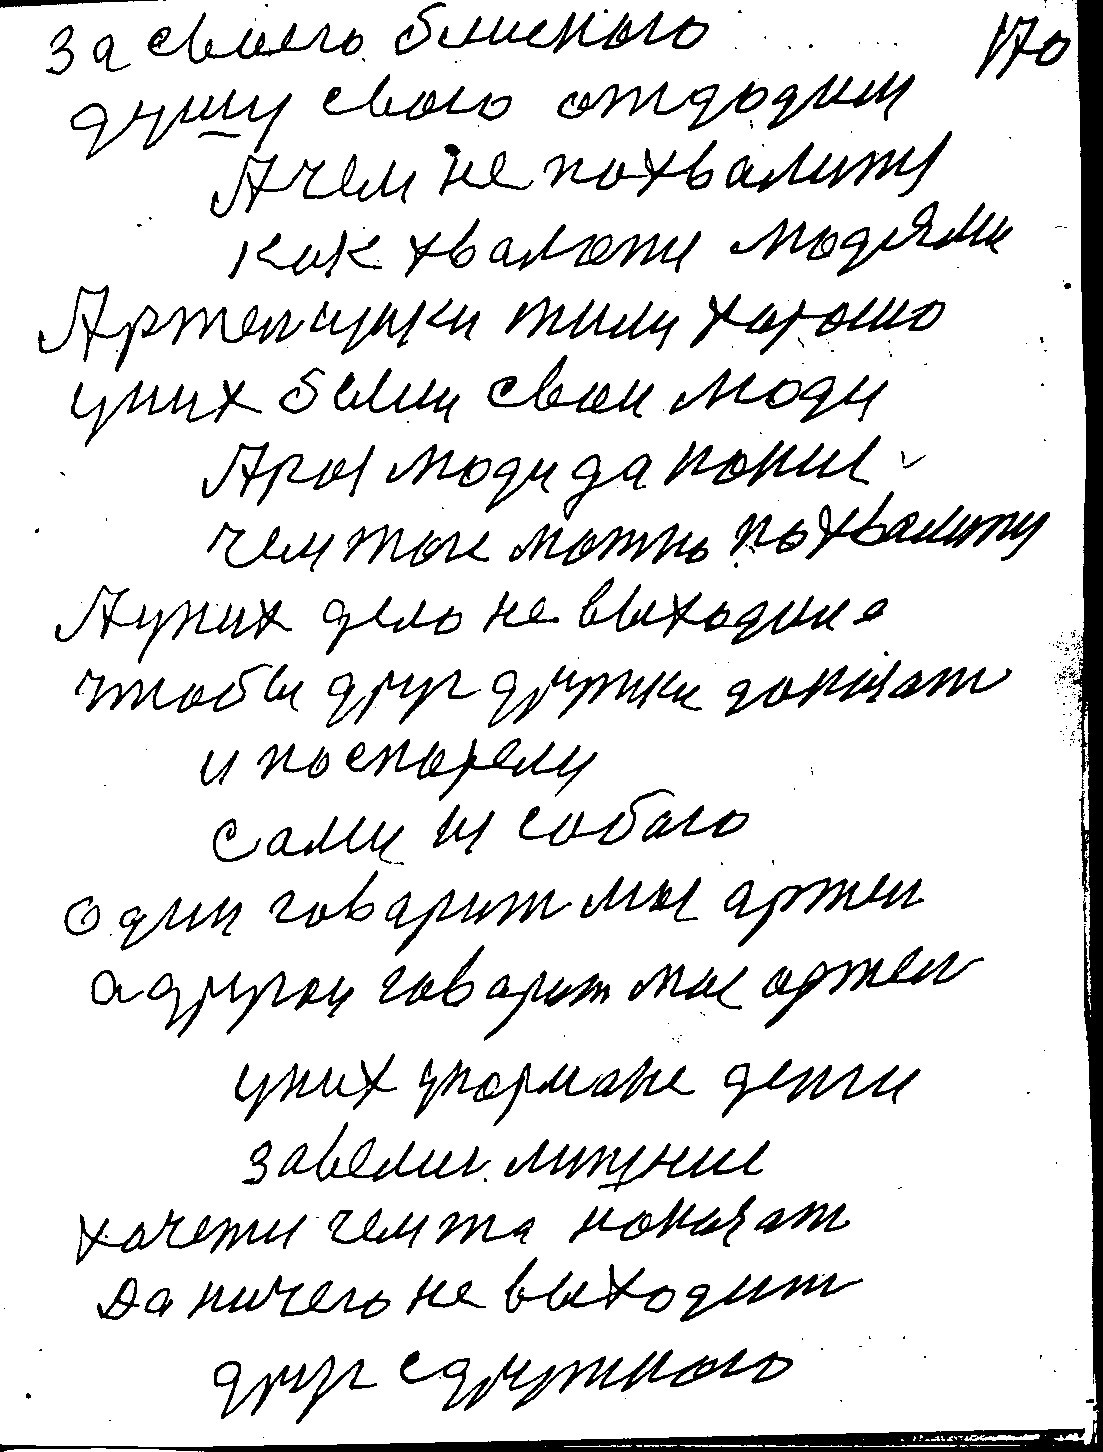 За своего близкого 170
душу свою отдодим
А чем не похвалитц
как хвалютц людями
Артельщики жили хорошо
уних были свои люди
А роз люди да кокие
чем жы можно похвалитц
А уних дело не выходило
чтобы друг дружки доказат
и поспорели
сами из собою
один говарит мое артел
а другои говарит мое артел
уних укормане денги
завелис лишние
хочетц чемта показат
Да ничего не выходит
друг сдружкою